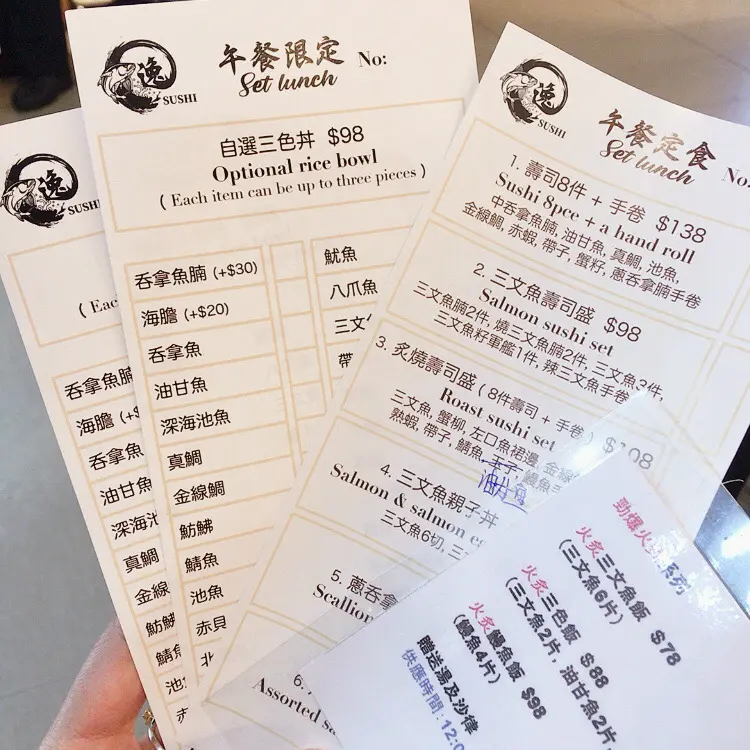 逸
SUSHI
(Eac
吞拿魚腩
海膽 (+$
吞拿魚
油甘魚
深海池
真鯛
金線
魴鮄
鯖魚
池
赤
逸
SUSHI
午餐限定
Set lunch
No:
自選三色丼 $98
Optional rice bowl
( Each item can be up to three pieces )
吞拿魚腩 (+$30)
海膽 (+$20)
吞拿魚
油甘魚
深海池魚
真鯛
金線鯛
魴鮄
鯖魚
池魚
赤貝
北
魷魚
八爪魚
三文
帶
逸
SUSHI
午餐定食
Set lunch
No:
1. 壽司8件 + 手卷 $138
Sushi 8pce + a hand roll
中吞拿魚腩, 油甘魚, 真鯛, 池魚,
金線鯛, 赤蝦, 帶子, 蟹籽, 蔥吞拿腩手卷
2. 三文魚壽司盛 $98
Salmon sushi set
三文魚腩2件, 燒三文魚腩2件, 三文魚3件,
三文魚籽軍艦1件, 辣三文魚手卷
3. 炙燒壽司盛 ( 8件壽司 + 手卷 ) $108
Roast sushi set
三文魚, 蟹柳, 左口魚裙邊, 金線
熟蝦, 帶子, 鯖魚, 玉子, 鰻魚手
油甘魚
4. 三文魚親子丼
Salmon & salmon eg
三文魚6切, 三
5. 蔥吞拿
Scallion
6.
Assorted sa
勁爆火炙系列
火炙三文魚飯 $78
(三文魚6片)
火炙三色飯 $88
(三文魚2片, 油甘魚2片
火炙鰻魚飯 $98
(鰻魚4片)
贈送湯及沙律
供應時間: 12:0